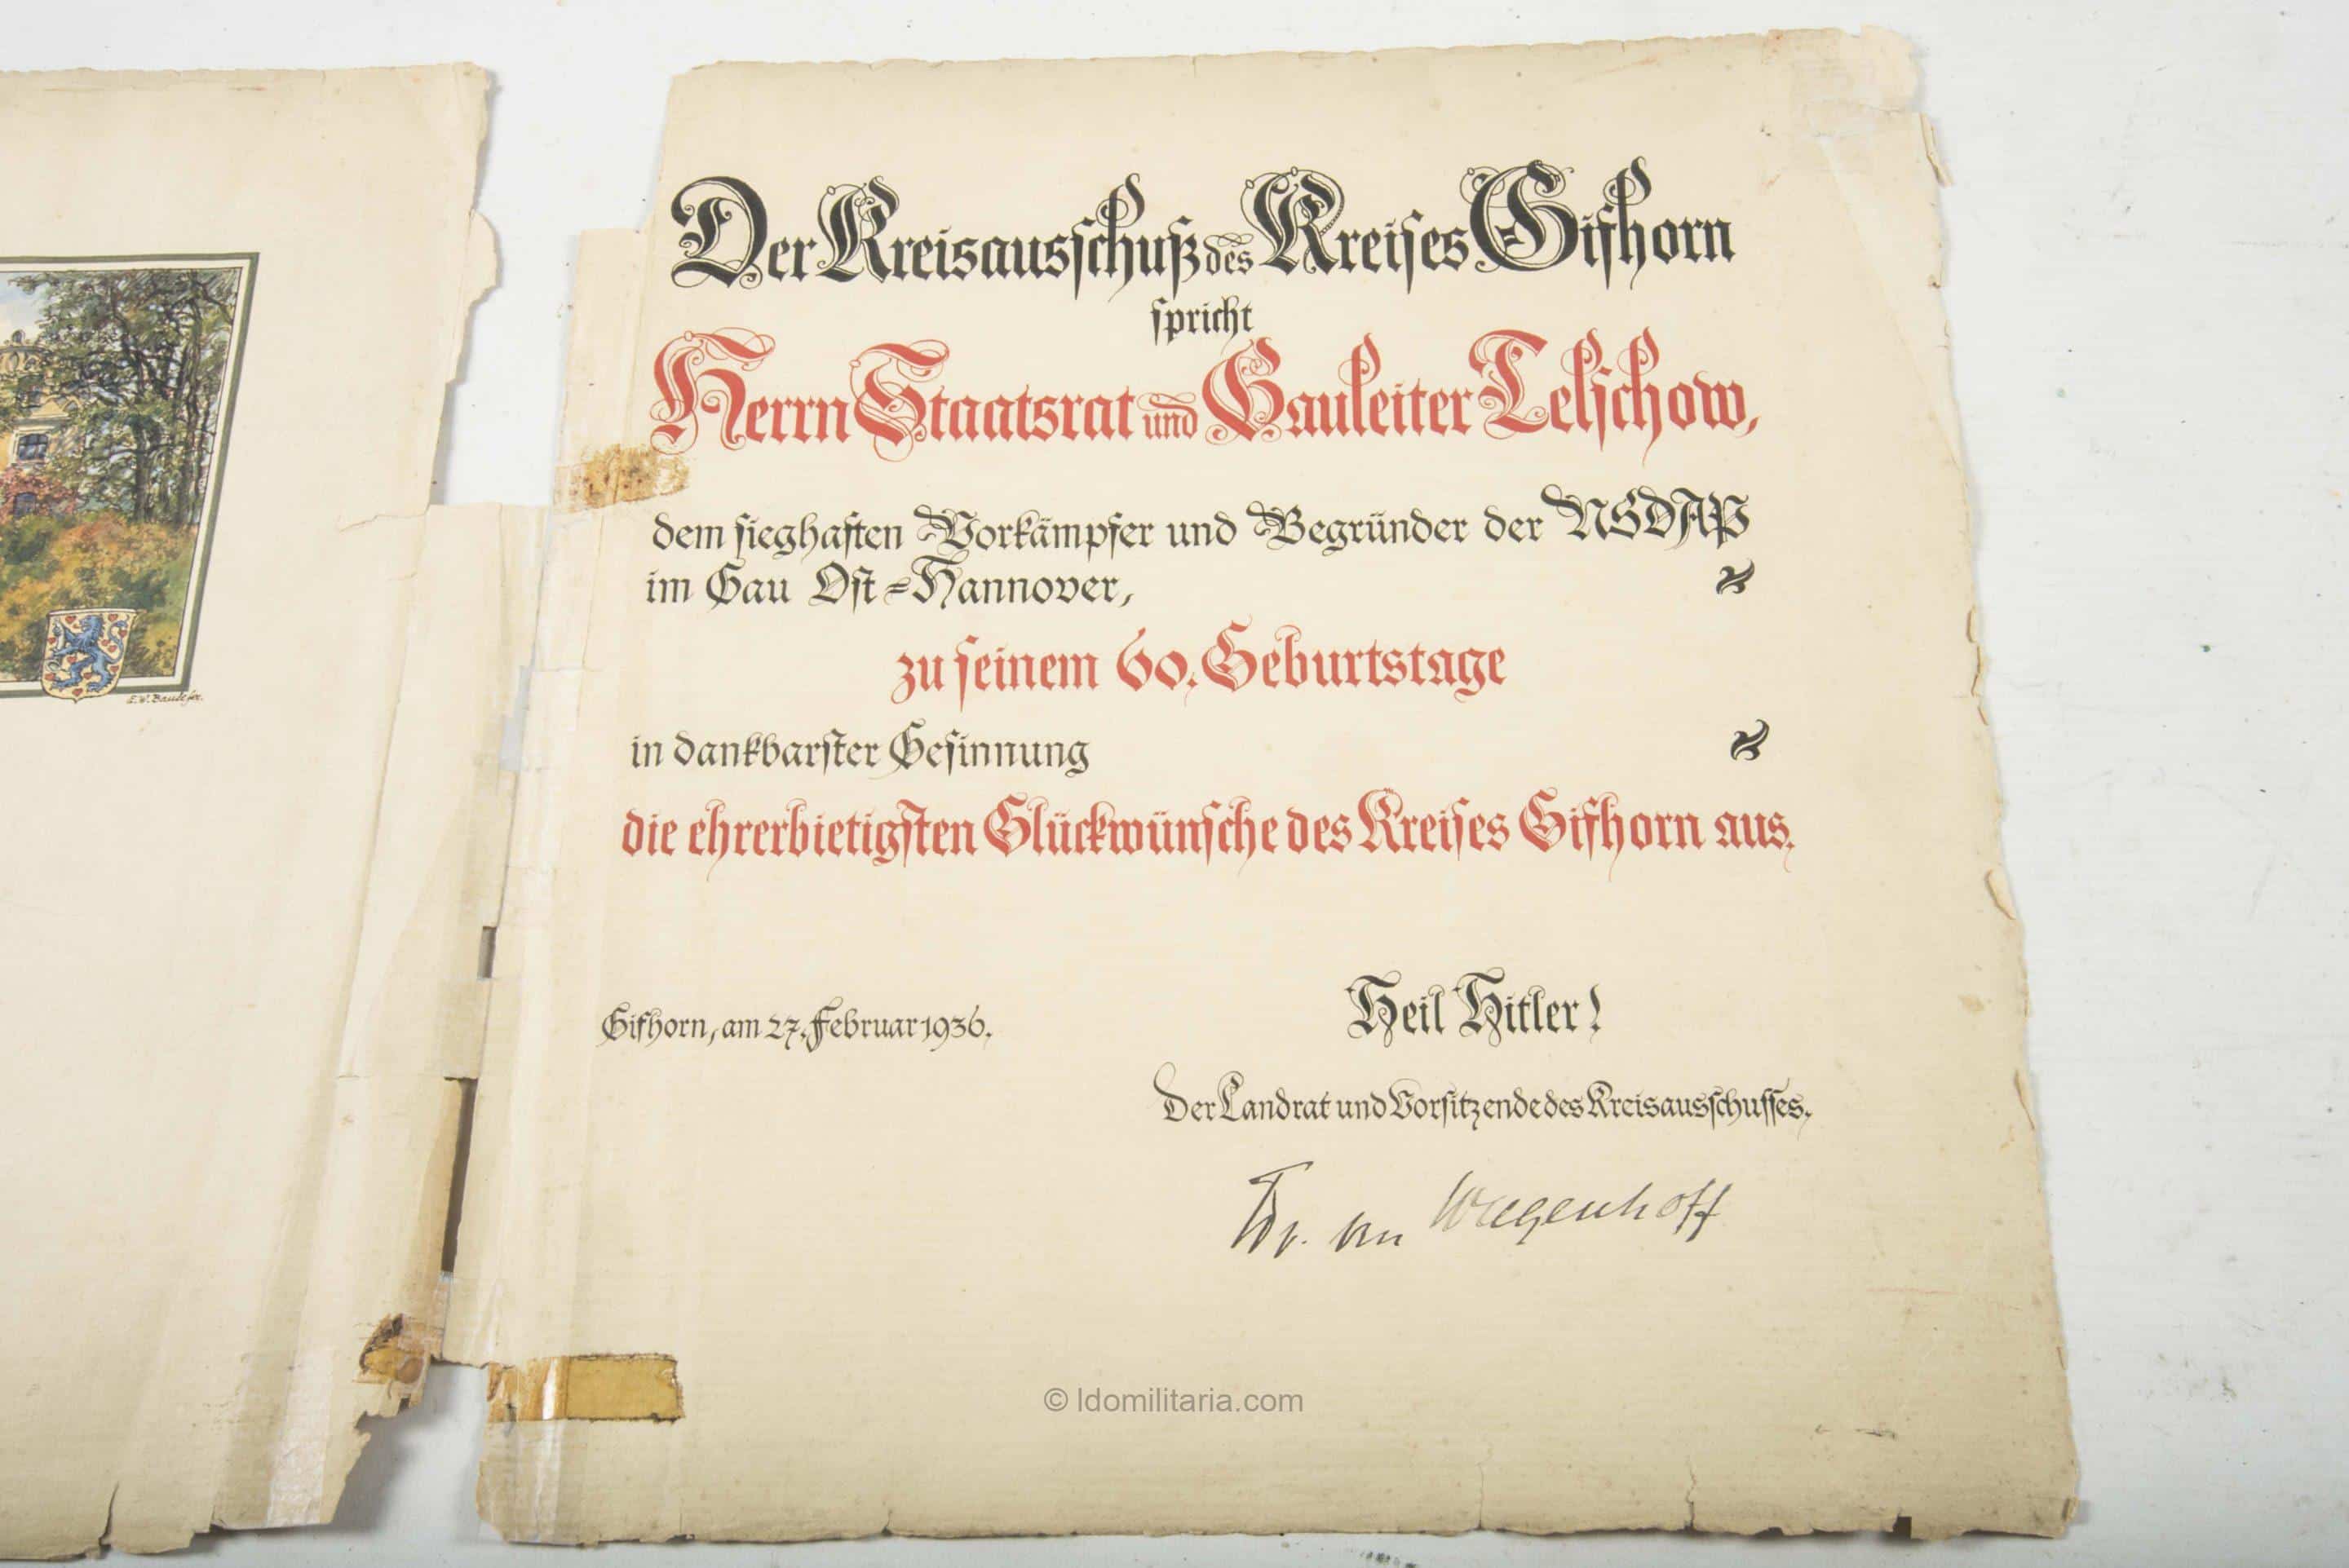 Der Kreisausschuß des Kreises Gifhorn
spricht
Herrn Staatsrat und Gauleiter Telschow,
dem sieghaften Vorkämpfer und Begründer der NSDAP
im Gau Ost=Hannover,
zu seinem 60. Geburtstage
in dankbarster Gesinnung
die ehrerbietigsten Glückwünsche des Kreises Gifhorn aus.
Gifhorn, am 27. Februar 1936.
Heil Hitler!
Der Landrat und Vorsitzende des Kreisausschusses,
Dr. von Wagenhoff
© ldomilitaria.com